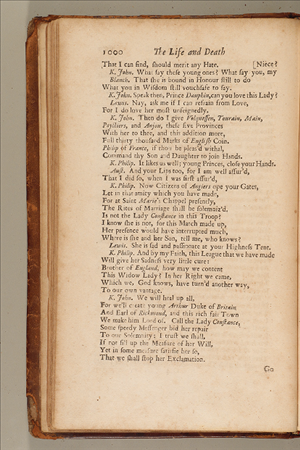 1000 The Life and Death
That I can find, should merit any Hate. [Niece?
K. John. What say these young ones? What say you, my
Blanch. That she is bound in Honour still to do
What you in Wisdom still vouchsafe to say.
K. John. Speak then, Prince Dauphin, can you love this Lady?
Lewis. Nay, ask me if I can refrain from Love,
For I do love her most unfeignedly.
K. John. Then do I give Volquessen, Tourain, Main,
Poyctiers, and Anjou, these five Provinces
With her to thee, and this addition more,
Full thirty thousand Marks of English Coin.
Philip of France, if thou be pleas'd withal,
Command thy Son and Daughter to join Hands.
K. Philip. It likes us well; young Princes, close your Hands.
Aust. And your Lips too, for I am well assur'd,
That I did so, when I was first assur'd.
K. Philip. Now Citizens of Angiers ope your Gates,
Let in that amity which you have made,
For at Saint Marie's Chappel presently,
The Rites of Marriage shall be solemniz'd.
Is not the Lady Constance in this Troop?
I know she is not, for this March made up,
Her presence would have interrupted much.
Where is she and her Son, tell me, who knows?
Lewis. She is sad and passionate at your Highness Tent.
K. Philip. And by my Faith, this League that we have made
Will give her Sadness very little cure:
Brother of England, how may we content
This Widow Lady? In her Right we came,
Which we, God knows, have turn'd another way,
To our own vantage.
K. John. We will heal up all,
For we'll create young Arthur Duke of Britain
And Earl of Richmond, and this rich fair Town
We make him Lord of. Call the Lady Constance,
Some speedy Messenger bid her repair
To our Solemnity; I trust we shall,
If not fill up the Measure of her Will,
Yet in some measure satisfie her so,
That we shall stop her Exclamation.
Go